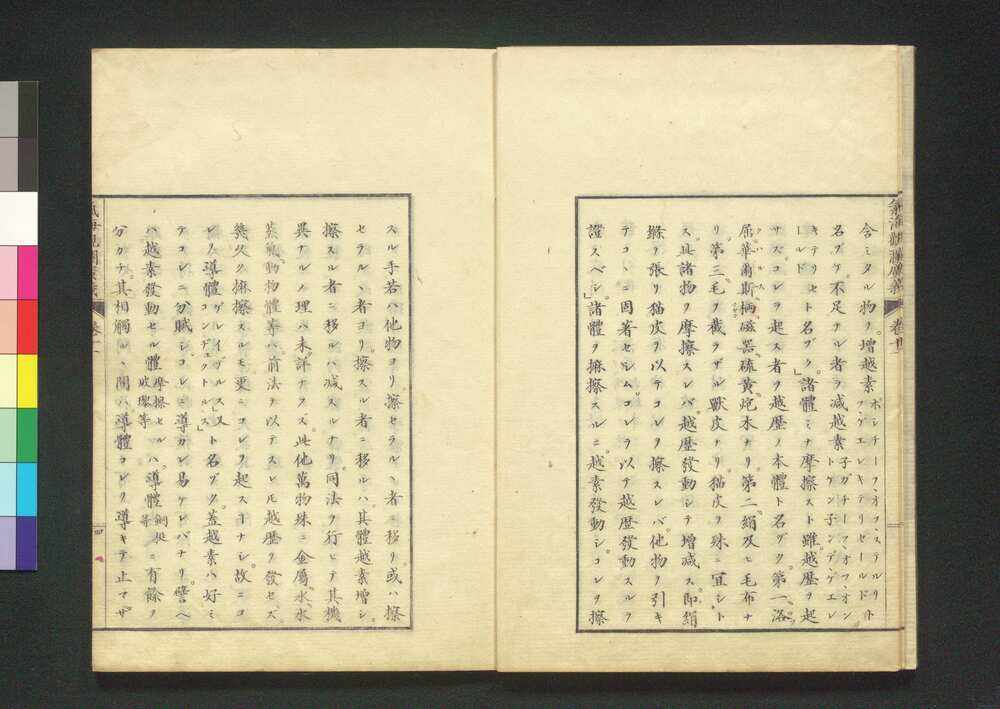 氣海觀瀾廣義 卷十一
含ミタル物ヲ。増越素ポシチーフ、オフ、ステルリ
フ、ゲエレキテリセールド、ト
名ヅケ。不足ナル者ヲ減越素子ガチーフ、オフ、オン
トケン子ンデ、ゲエレ
キテリセ
ールドト名ヅク」諸體ミナ摩擦スト雖。越歴ヲ起
サズ。コレヲ起ス者ヲ越歴ノ本體ト名ヅク。第一。洛
屈華爾斯。柄。磁器。硫黄。炮木ナリ。第二。絹及ヒ毛布ナ
リ。第三。毛ヲ截ラザル獸皮ナリ。猫皮ヲ殊ニ宜シト
ス。此諸物ヲ摩擦スレバ。越歴發動シテ増減ス。即絹
緞ヲ張リ猫皮ヲ以テコレヲ擦スレバ。他物ヲ引キ
テコヽニ固著セシム。コレヲ以テ越歴發動スルヲ
證スベシ」諸體ヲ擦擦スルニ。越素發動シ。コレヲ擦
スル手若ハ他物ヨリ擦セラルヽ者ニ移リ。或ハ擦
セラルヽ者ヨリ擦スル者ニ移ルハ。其體越素増シ。
擦スル者ニ移ルハ減スルナリ。同法ヲ行ヒテ其機
異ナルノ理ハ未詳ナラズ。此他萬物殊ニ金屬。水。氷
蒸氣。動物體等ハ。前法ヲ以テスレモ越歴ヲ發セズ。
幾久ク擦擦スルモ更ニコレヲ起スヿナシ。故ニコ
レヲ導體ゲレイヅルス」又
コンヂュクトルス」ト名ヅク。蓋越素ハ好ミ
テコレニ分賦シ。コレニ導カレ易ケレバナリ。譬ヘ
ハ越素發動セル體摩擦セル
玻瓈等ハ。導體銅挺
等ニ有餘ヲ
分カチ。其相觸ルヽ間ハ導體コレヲ導キテ止マザ
氣海觀瀾廣義 卷十一 四